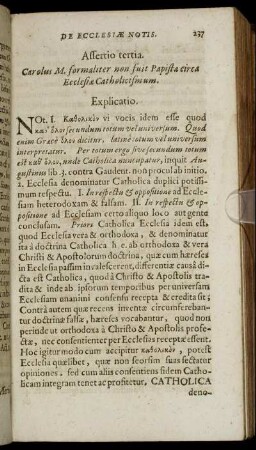 DE ECCLESIÆ NOTIS. 237
Assertio tertia.
Carolus M. formaliter non fuit Papista circa
Ecclesiæ Catholicismum.
Explicatio.
NOt. I. Καθολικὸν vi vocis idem esse quod
καθ' ὅλον secundum totum vel universum. Quod
enim Græcè ὅλον dicitur, latinè totum vel universum
interpretatur. Per totum ergo sive secundum totum
est καθ' ὅλον, unde Catholica nuncupatur, inquit Au-
gustinus lib. 3. contra Gaudent. non procul ab initio.
2. Ecclesia denominatur Catholica duplici potissi-
mum respectu. I. In respectu & oppositione ad Eccles-
siam heterodoxam & falsam. II. In respectu & op-
positione ad Ecclesiam certo aliquo loco aut gente
conclusam. Priore Catholica Ecclesia idem est,
quod Ecclesia vera & orthodoxa, & denominatur
ità à doctrina Catholica h. e. ab orthodoxa & vera
Christi & Apostolorum doctrina, quæ cum hæreses
in Ecclesia passim invalescerent, differentiæ causâ di-
cta est Catholica, quod à Christo & Apostolis tra-
dita & inde ab ipsorum temporibus per universam
Ecclesiam unanimi consensu recepta & credita sit;
Contrà autem quæ recens inventæ circumferebanꝰ-
tur doctrinæ falsæ, hæreses vocabantur, quod non
perinde ut orthodoxa à Christo & Apostolis profe-
ctæ, nec consentienter per Ecclesias receptæ essent.
Hoc igitur modo cum accipitur καθολικὸν, potest
Ecclesia quælibet, quæ non seorsim suas sectatur
opiniones, sed cum aliis consentiens fidem Catho-
licam integram tenet ac profitetur, CATHOLICA
deno-